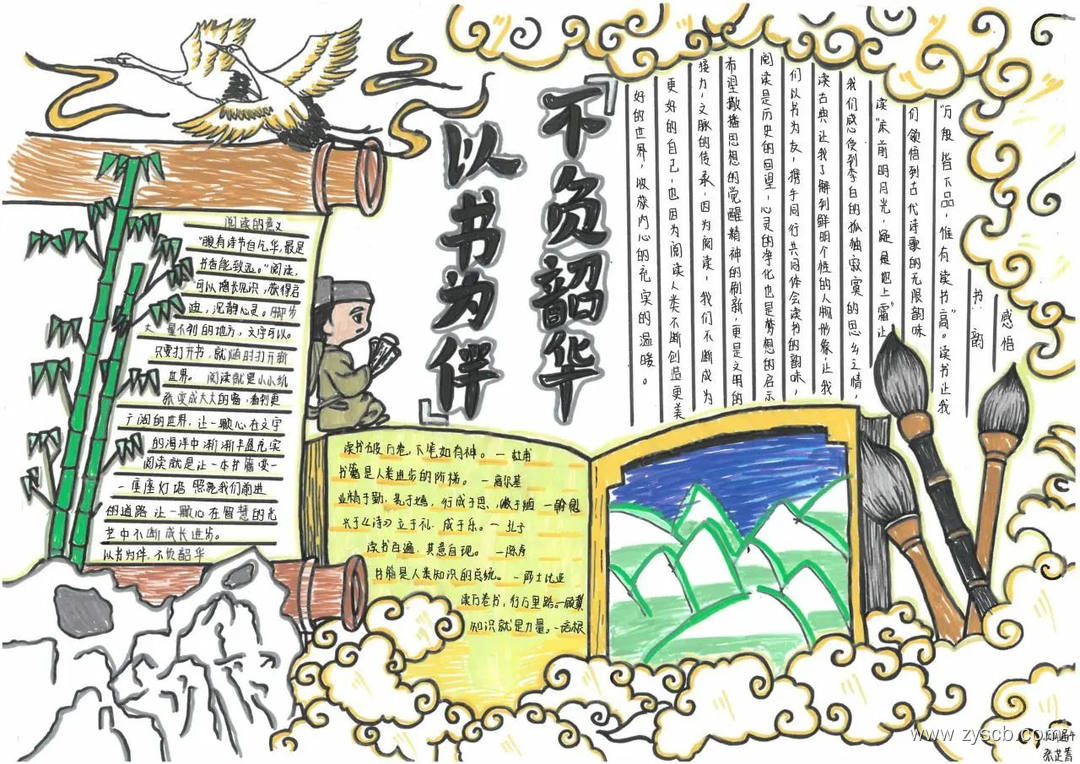 「不负韶华
以书为伴」
阅读的意义
“腹有诗书自气华,最是
书香能致远。”阅读,
可以增长见识,获得启
迪,沉静心灵。脚步
丈量不到的地方,文字可以。
只要打开书,就随时打开新
世界。 阅读就是小小纸
张变成大大的窗,看到更
广阔的世界,让一颗心在文字
的海洋中渐渐丰盈充实
阅读就是让一本书籍变一
一座座灯塔 照亮我们前进
的道路 让一颗心在智慧的光
芒中不断成长进步。
以书为伴,不负韶华
读书破万卷,下笔如有神。—杜甫
书籍是人类进步的阶梯。—高尔基
业精于勤,荒于嬉,行成于思,毁于随 —韩愈
兴于《诗》立于礼.成于乐。—孔子
读书百遍,其意自现。—陈寿
书籍是人类知识的总统。—莎士比亚
读万卷书,行万里路。—顾炎
知识就是力量。—培根
感悟
书韵
“万般皆下品,惟有读书高”。读书让我
们领悟到古代诗歌的无限韵味
读“床前明月光,疑是地上霜”让
我们感受到李白的孤独寂寞的思乡之情,
读古典让我了解到鲜明个性的人物形象让我
们以书为友,携手同行共同体会读书的韵味,
阅读是历史的回望,心灵的净化也是梦想的启示
希望散播思想的觉醒精神的刷新,更是文明的
接力,文脉的传承,因为阅读,我们不断成为
更好的自己,也因为阅读人类不断创造更美
好的世界,收获内心的充实的温暖。
www.zyscb.com